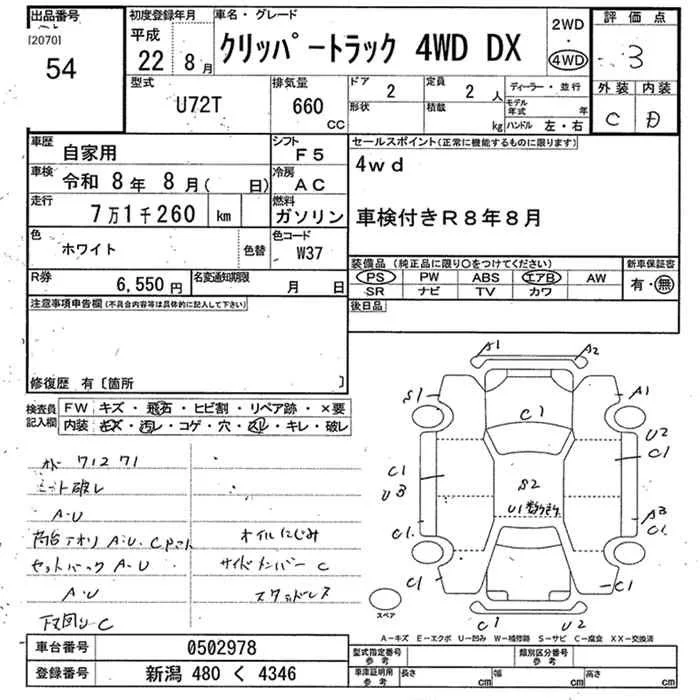 出品番号
[2070]
54
初度登録年月
平成
22年 8月
車名・グレード
クリッパートラック 4WD DX
2WD
・
4WD
評価点
3
外装 内装
C D
型式
U72T
排気量
660
CC
ドア
2
定員
2 人
形状
積載
kg
ディーラー・並行
モデル年式 年
ハンドル 左・右
車歴
自家用
シフト
F5
車検
令和 8年 8月( 日)
冷房
AC
走行
7万1千260 km
燃料
ガソリン
色
ホワイト
色替
色コード
W37
R券
6,550円
名変通知期限
月 日
セールスポイント(正常に機能するものに限ります)
4wd
車検付きR8年8月
装備品(純正品に限り○をつけてください)
PS PW ABS エアB AW
SR ナビ TV カワ
新車保証書
有・無
後日品
注意事項申告欄(不具合内容等は具体的に記入して下さい)
修復歴 有〔箇所 〕
検査員記入欄
FW キズ・飛石・ヒビ割・リペア跡・×要
内装 キズ・汚レ・コゲ・穴・スレ・キレ・破レ
71271
シート破レ
A・U
荷台アオリ A・U、C
セットバック A・U
A・U
下マ回り C
オイルにじみ
サイドメンバー C
スタッドレス
A1 A2
S1 A1
C1
U2
C1
C1
U3
S2
U1
A3
C1
C1
C1
C1
C1 U2
スペア
A-キズ E-エクボ U-凹み W-補修跡 S-サビ C-腐食 XX-交換済
車台番号 0502978
登録番号 新潟 480 く 4346
型式指定番号
参考
類別区分番号
参考
車庫証明用
参考
長さ cm 幅 cm 高さ cm